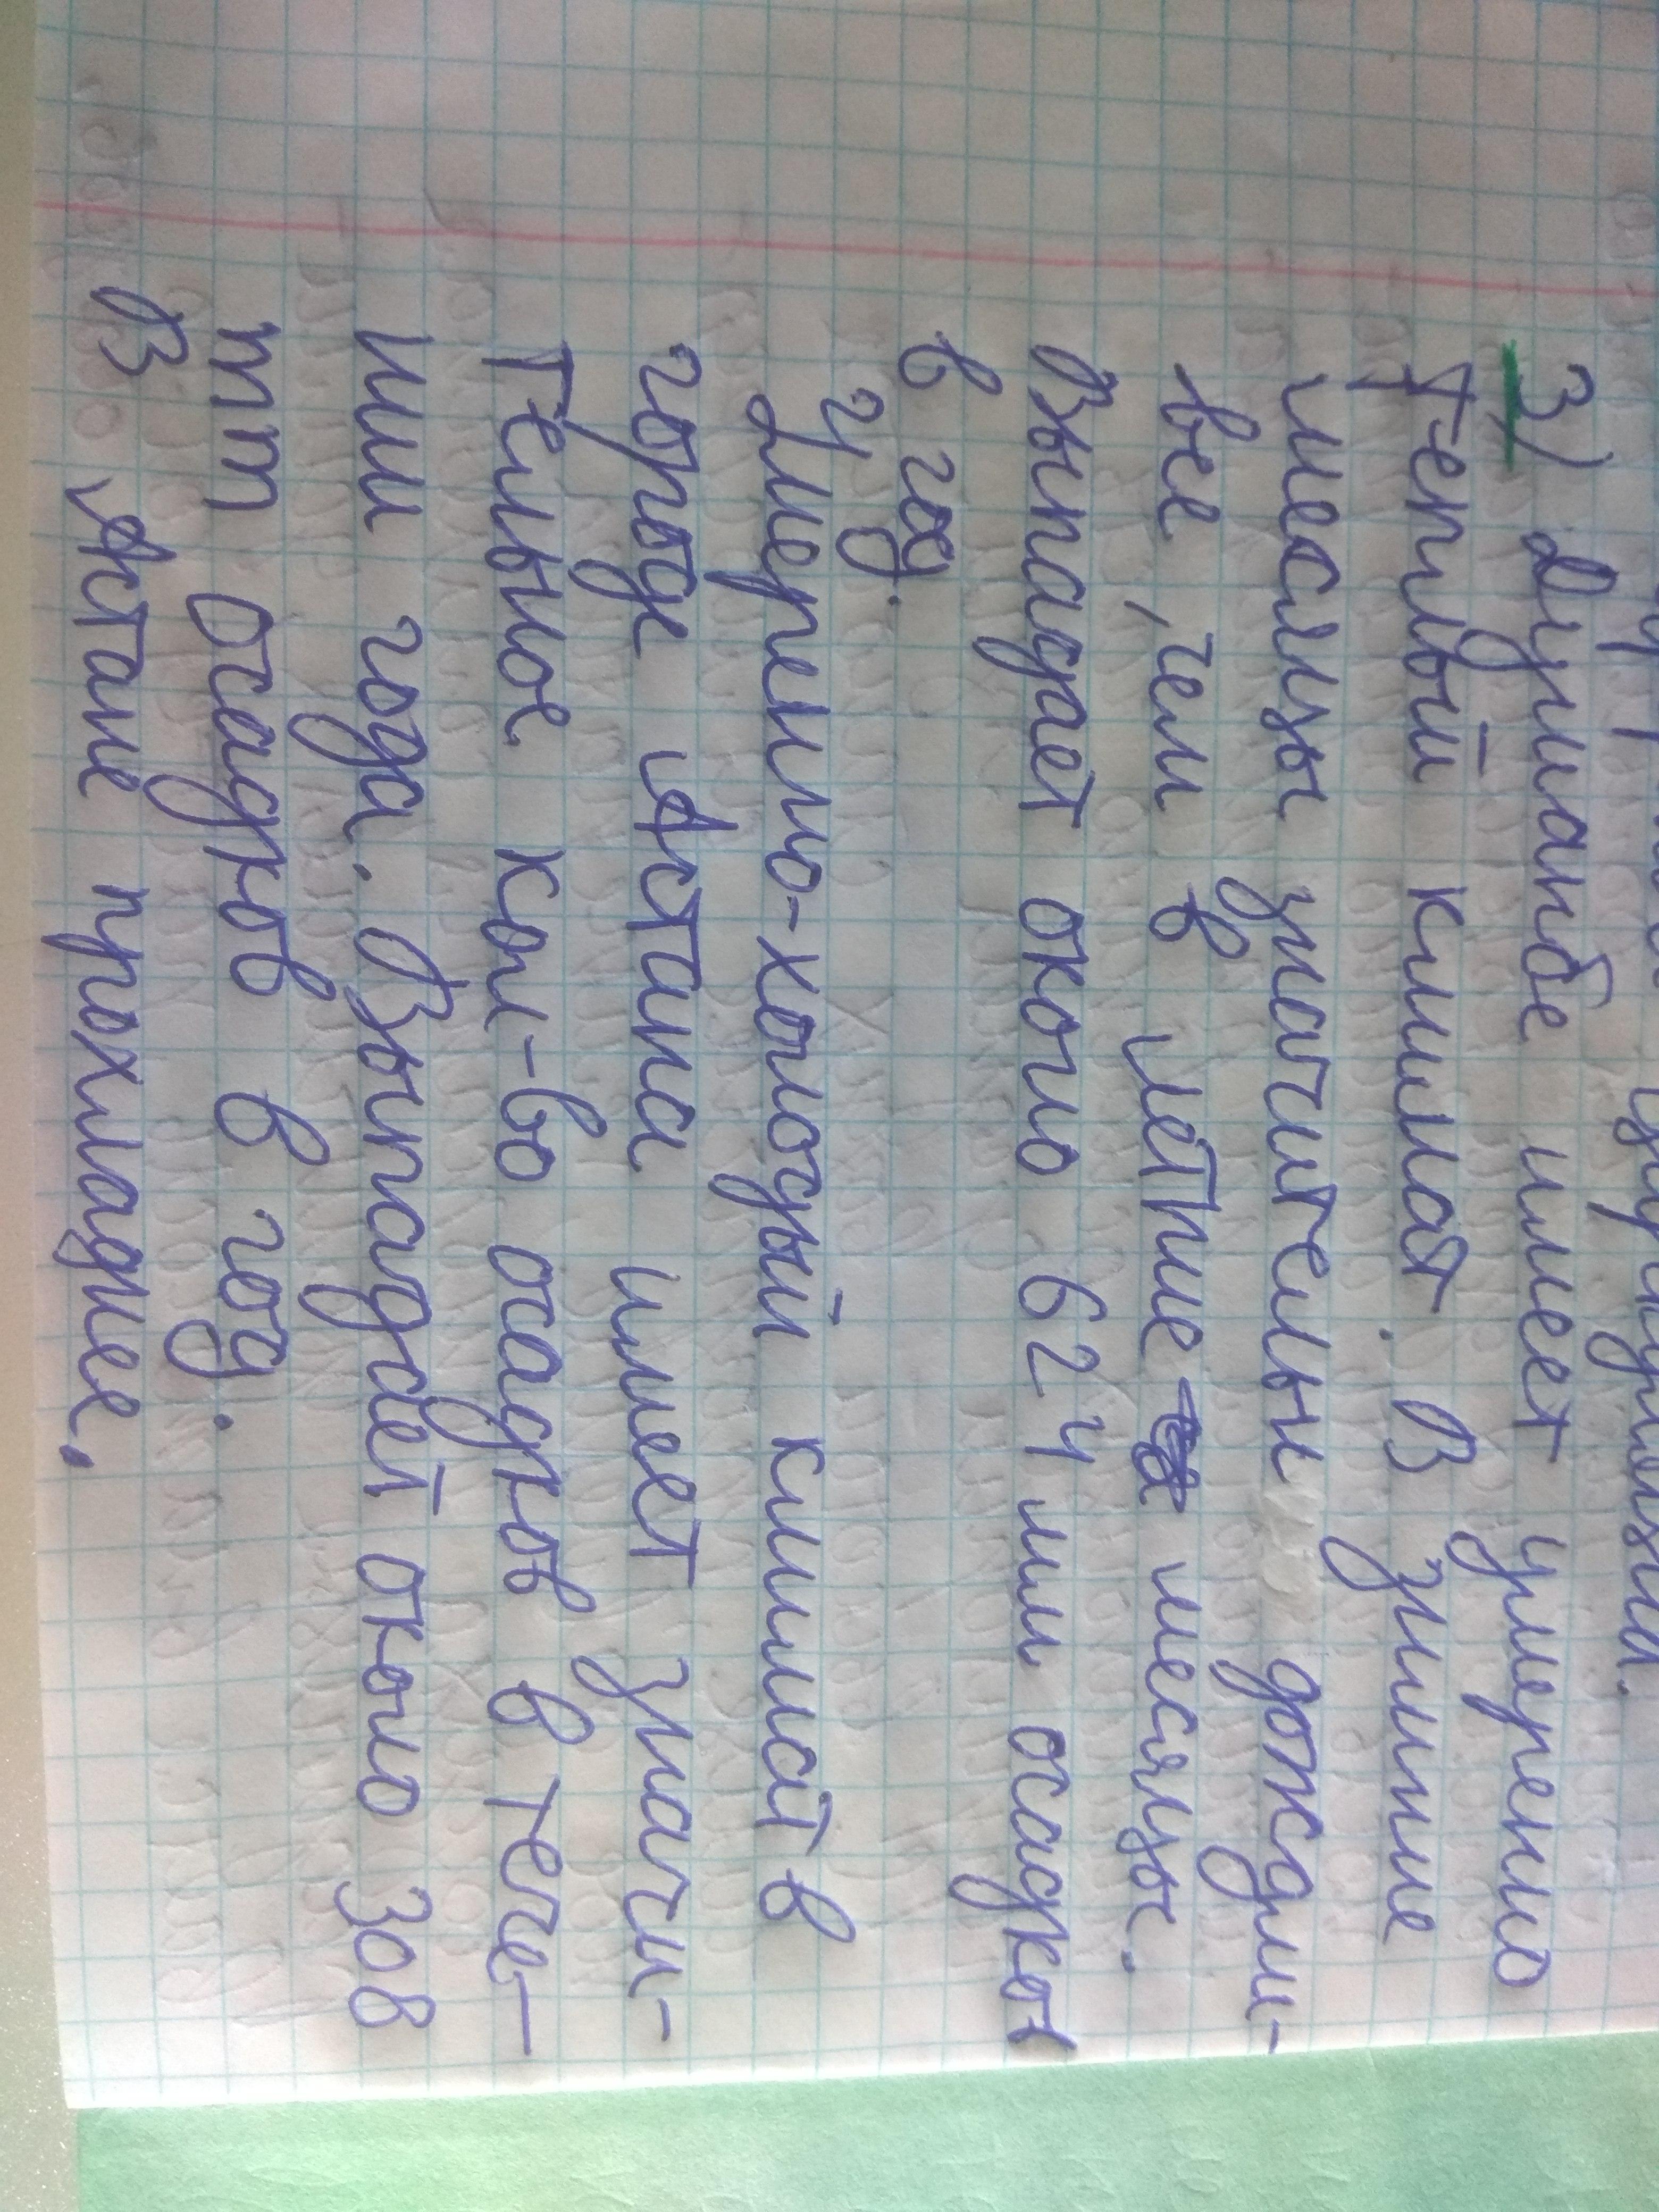 3) Душанбе имеет умеренно
тёплый климат. В зимние
месяцы значительны дождли-
вее, чем в летние месяцы.
Выпадает около 624 мм осадков
в год.
Умеренно-холодный климат в
городе Астана имеет значи-
тельное кол-во осадков в тече-
нии года. Выпадает около 308
mm осадков в год.
В Астане прохладнее.